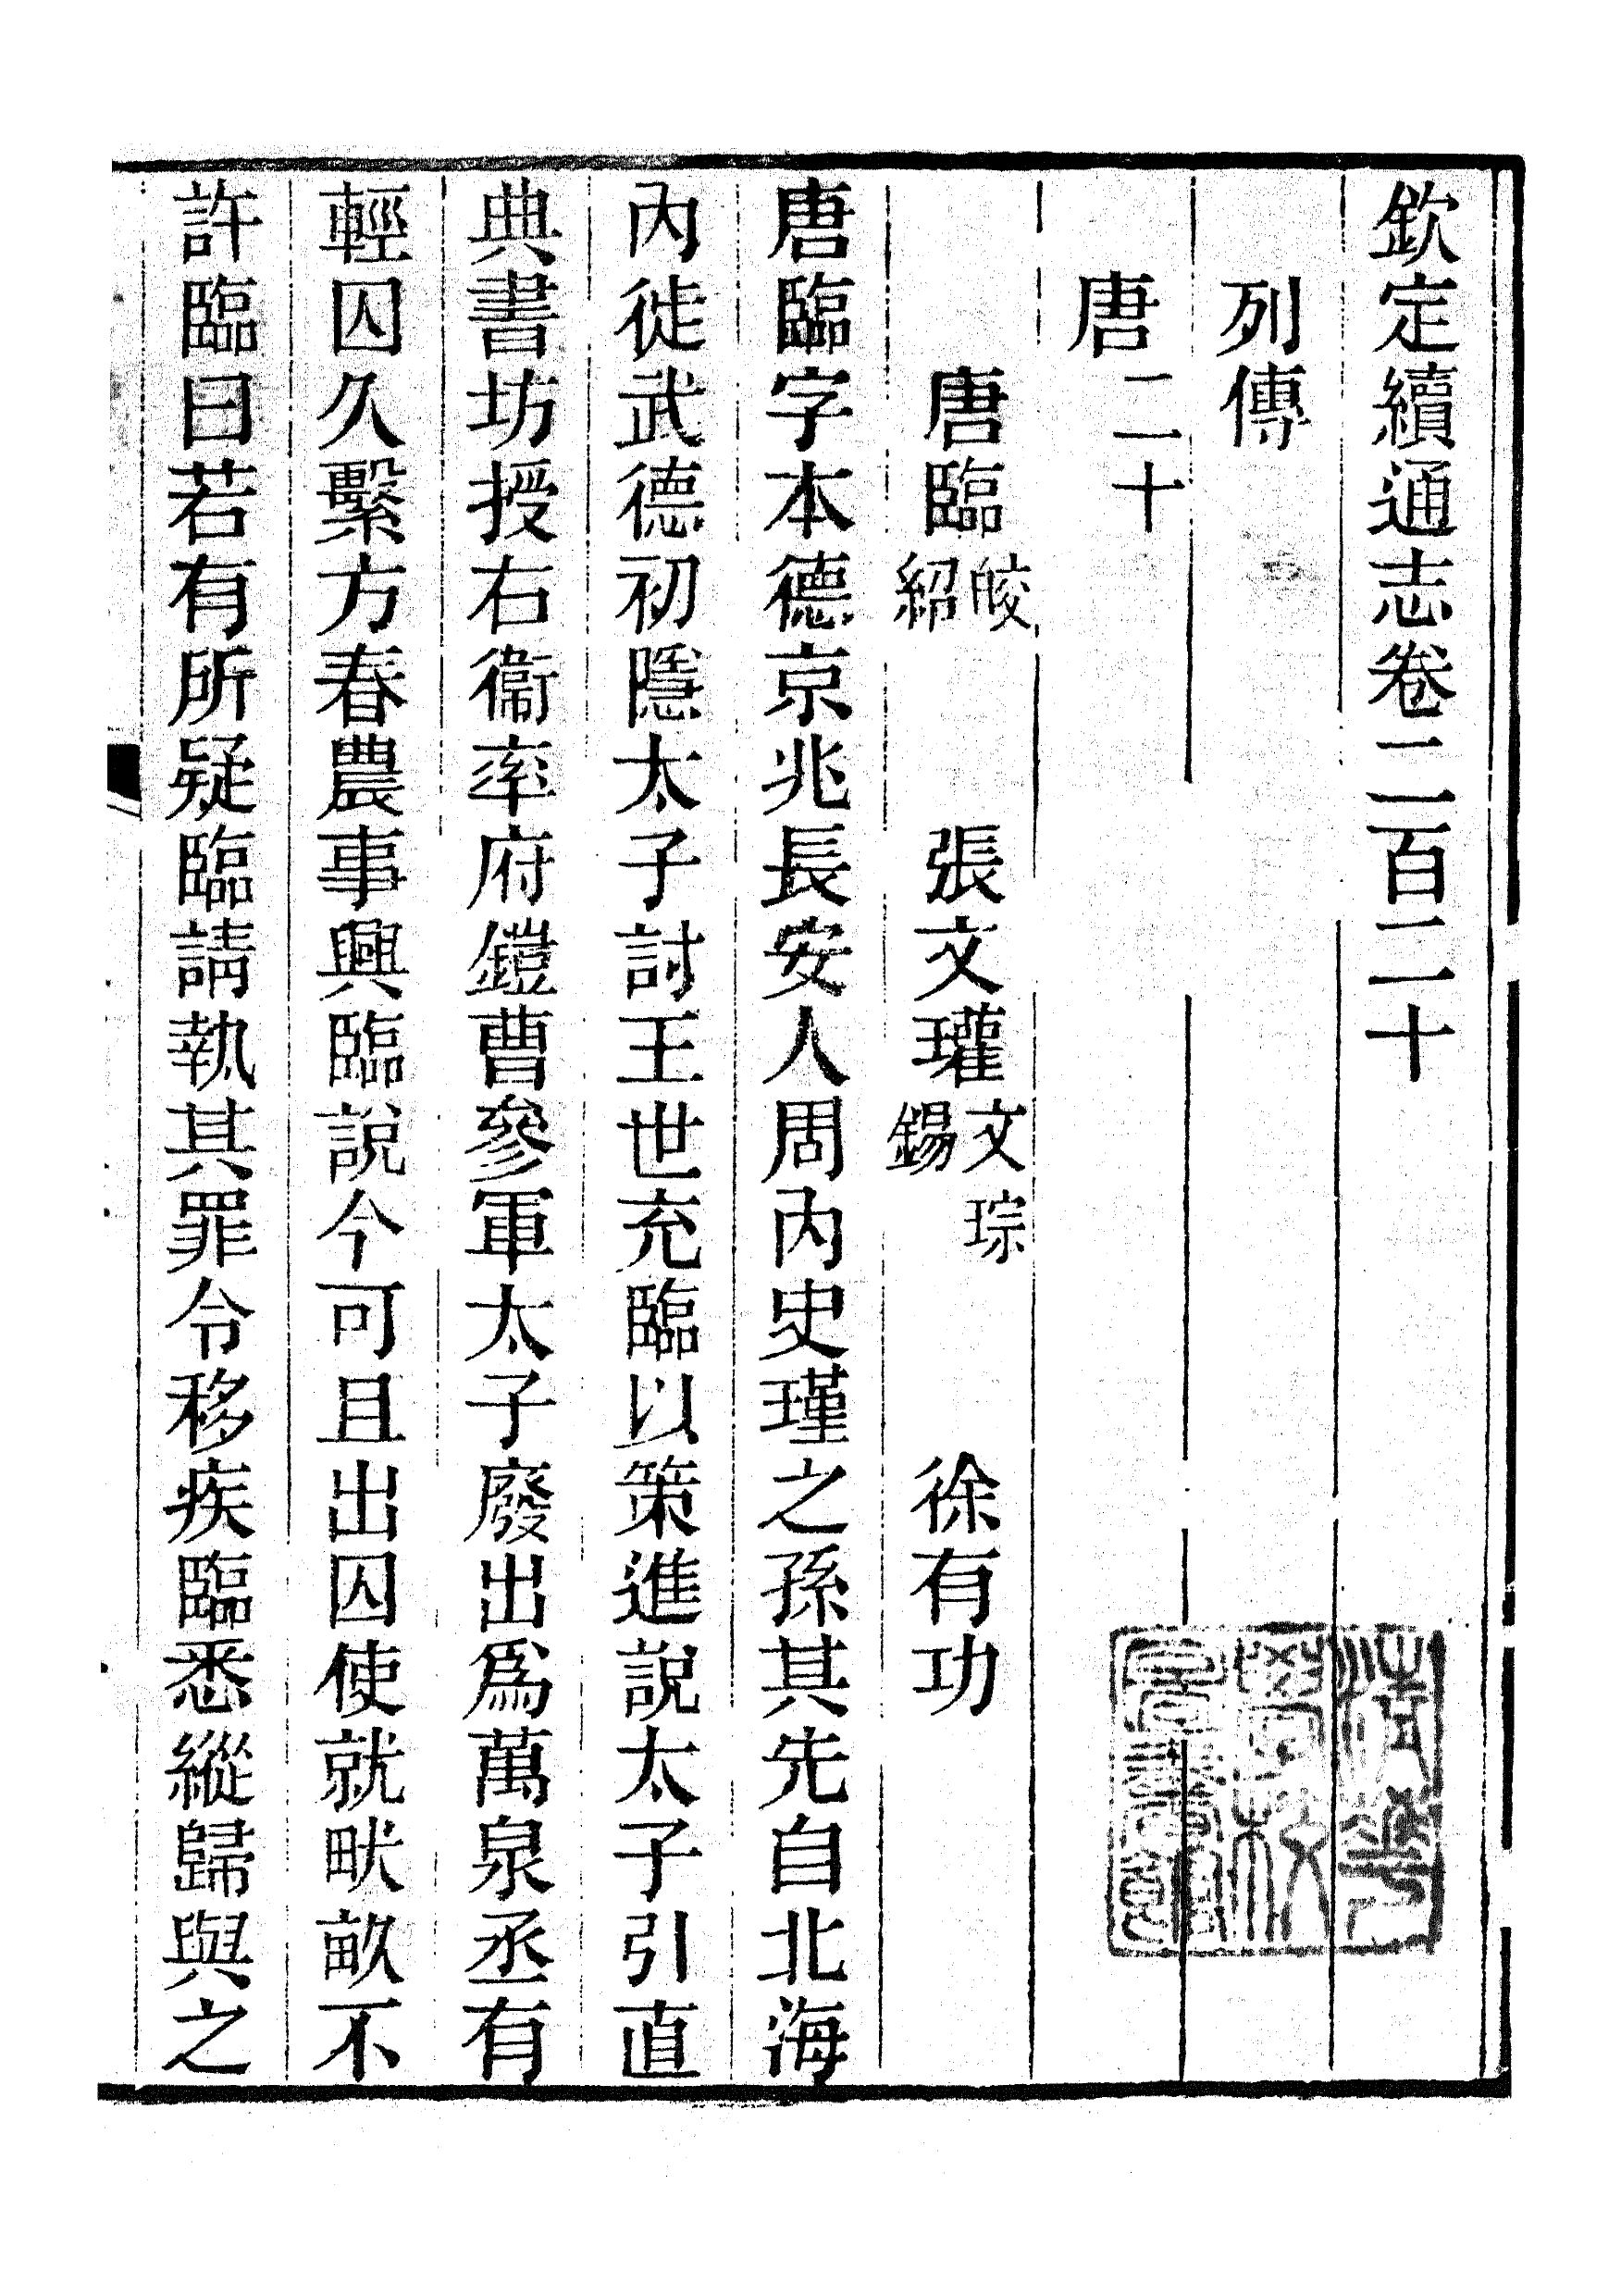 欽定續通志卷二百二十
列傳
唐二十
唐臨皎紹 張文瓘文琮錫 徐有功
唐臨字本德京兆長安人周内史瑾之孫其先自北海
内徙武德初隱太子討王世充臨以策進說太子引直
典書坊授右衞率府鎧曹參軍太子廢出爲萬泉丞有
輕囚久繫方春農事興臨說令可且出囚使就畎畝不
許臨曰若有所疑臨請執其罪令移疾臨悉縱歸與之